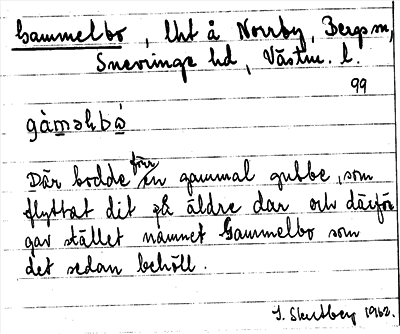 Gammelbo, lht å Norrby, Bergs sn,
Snevringe hd, Västm. l.
99
gàmǝlbò
Där bodde förr en gammal gubbe, som
flyttat dit på äldre dar och därför
gav stället namnet Gammelbo som
det sedan behöll.
1962.